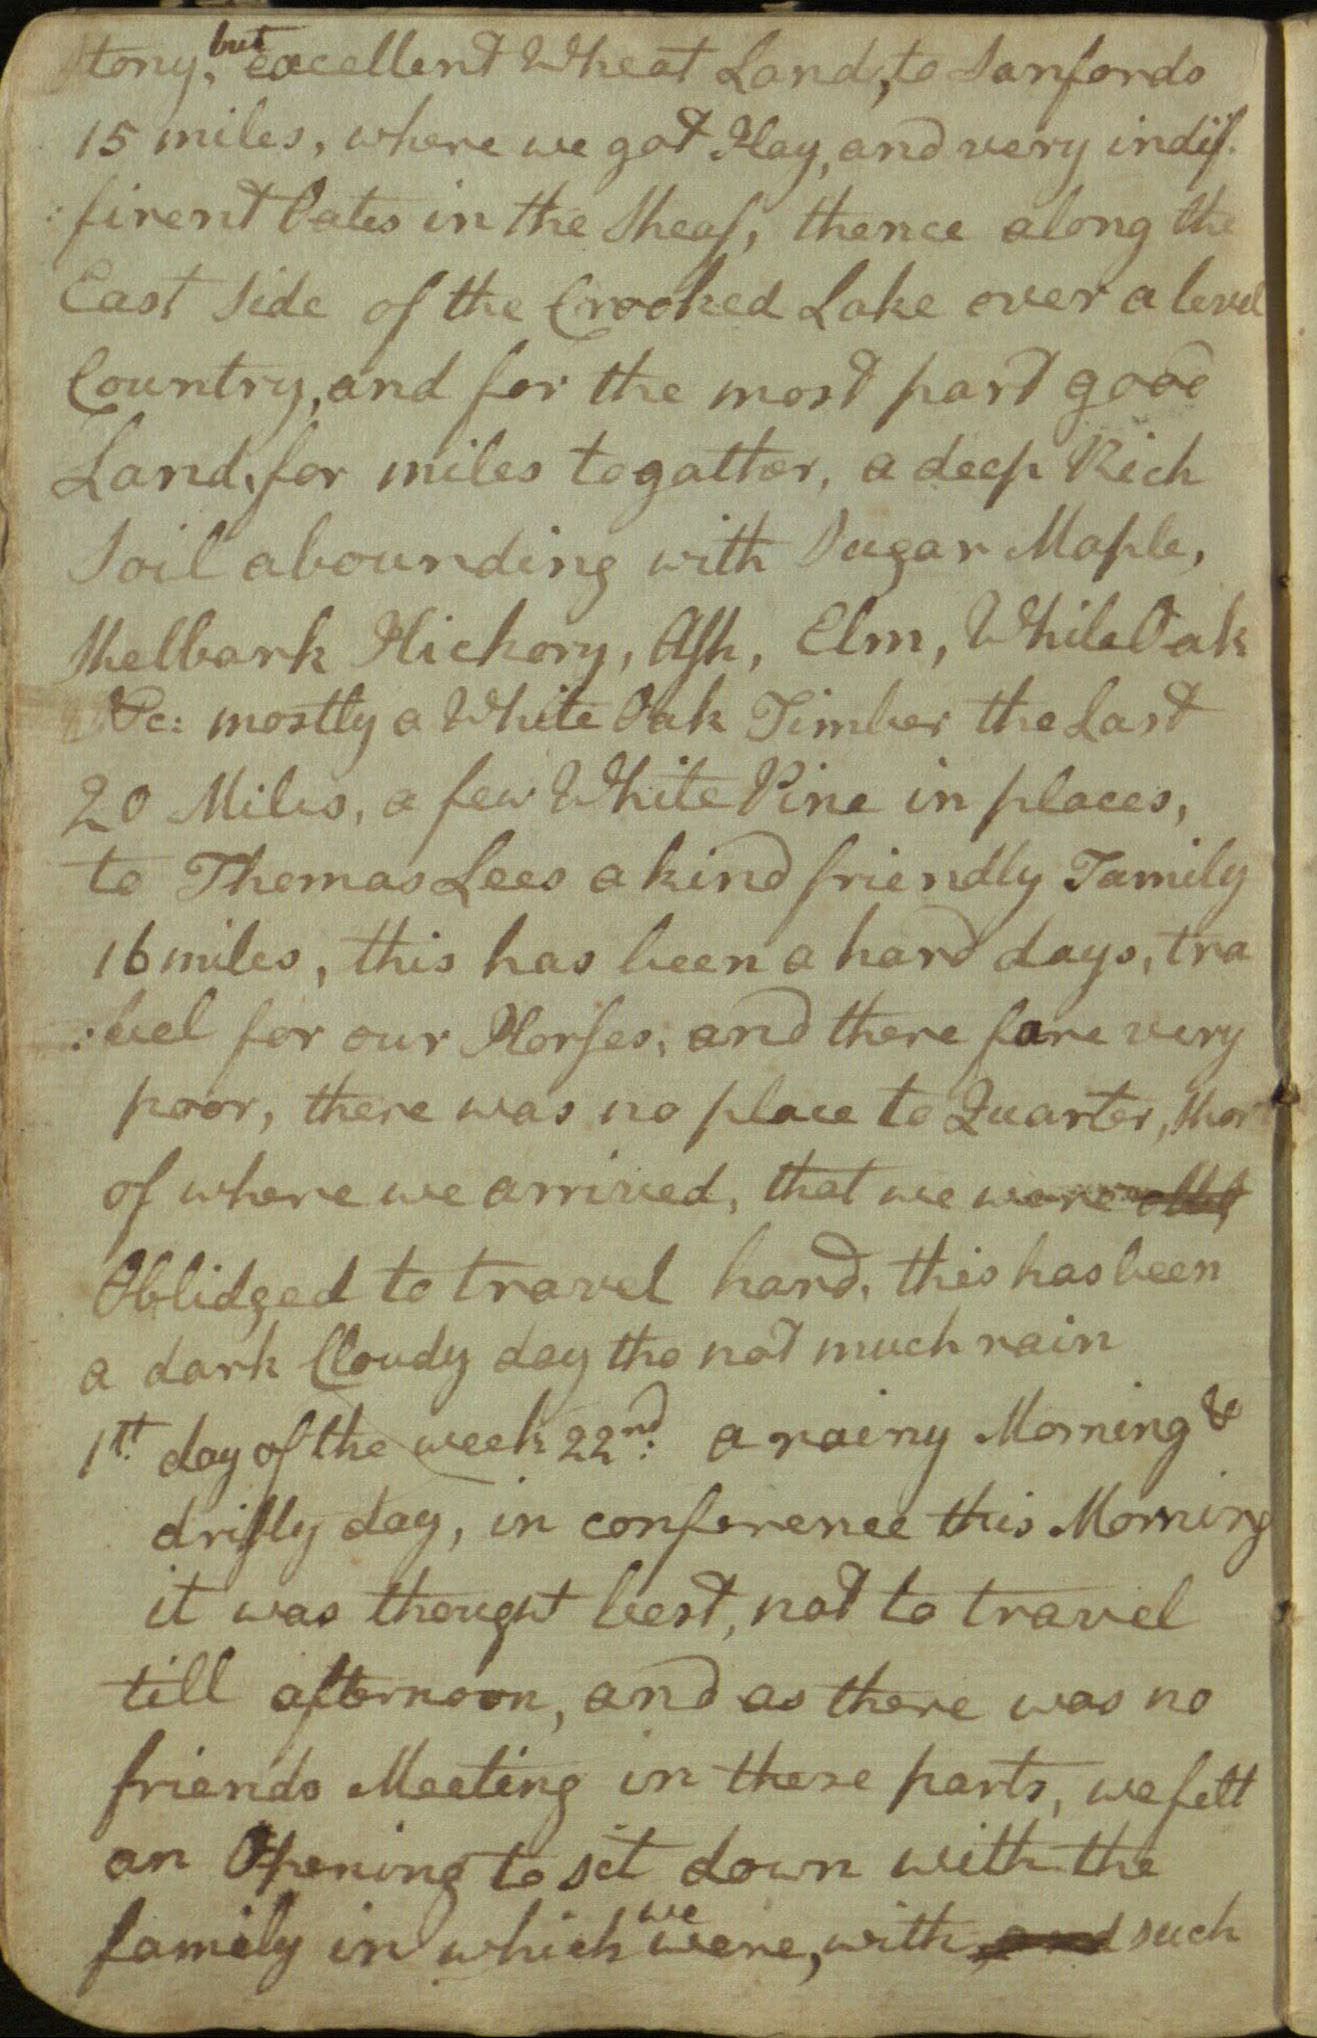 Stony, but excellent Wheat Land, to Sanfords
15 miles, where we got Hay, and very indif-
:firent Oates in the Sheaf, thence along the
East Side of the Crooked Lake over a level
Country, and for the most part good
Land, for miles togatter, a deep Rich
Soil abounding with Sugar Maple,
Shelbark Hickory, Ash, Elm, White Oak
&c: mostly a White Oak Timber the Last
20 Miles, a few White Pine in places,
to Thomas Lees a kind friendly Family
16 miles, this has been a hard days, tra
:vel for our Horses, and there fare very
poor, there was no place to Quarter, Shor
of where we arrived, that we were
Oblidged to travel hard, this has been
a dark Cloudy day tho not much rain
1st day of the week 22nd: a rainy Morning &
drisly day, in conference this Morning
it was thought best, not to travel
till afternoon, and as there was no
friends Meeting in these parts, we felt
an Opening to sit down with the
family in which we were, with and such